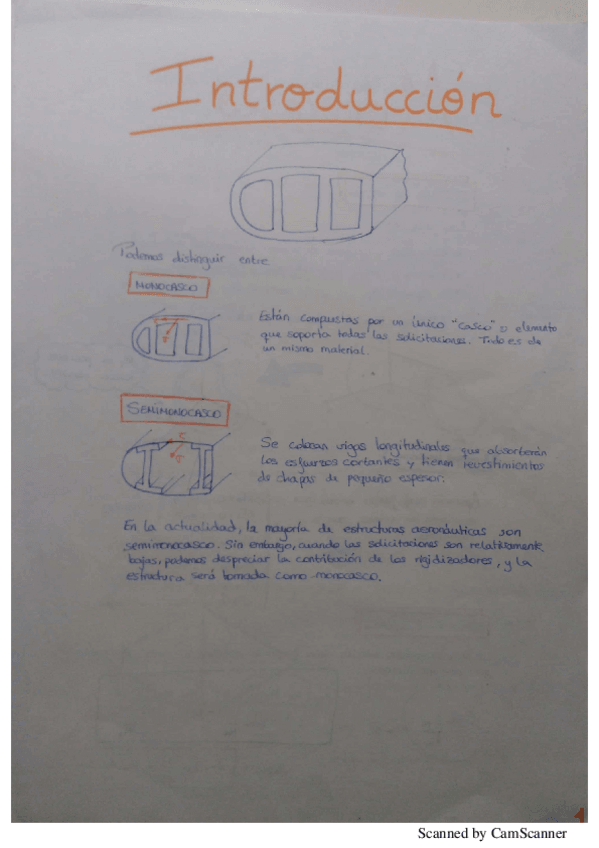 Introducción
Podemos distinguir entre
MONOCASCO
Están compuestas por un único "casco" o elemento
que soporta todas las solicitaciones. Todo es de
un mismo material.
SEMIMONOCASCO
Se colocan vigas longitudinales que absorberán
los esfuerzos cortantes y tienen revestimientos
de chapas de pequeño espesor.
En la actualidad, la mayoría de estructuras aeronáuticas son
semimonocasco. Sin embargo, cuando las solicitaciones son relativamente
bajas, podemos despreciar la contribución de los rigidizadores, y la
estructura será tomada como monocasco.
1
Scanned by CamScanner